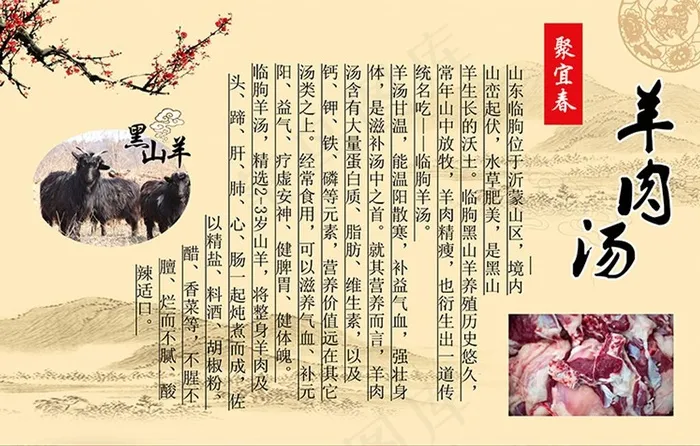 聚宜春
羊肉汤
山东临朐位于沂蒙山区，境内
山峦起伏，水草肥美，是黑山
羊生长的沃土。临朐黑山羊养殖历史悠久，
常年山中放牧，羊肉精瘦，也衍生出一道传
统名吃——临朐羊汤。
羊汤甘温，能温阳散寒，补益气血，强壮身
体，是滋补汤中之首。就其营养而言，羊肉
汤含有大量蛋白质、脂肪、维生素，以及
钙、钾、铁、磷等元素，营养价值远在其它
汤类之上。经常食用，可以滋养气血、补元
阳、益气、疗虚安神、健脾胃、健体魄。
临朐羊汤，精选2-3岁山羊，将整身羊肉及
头、蹄、肝、肺、心、肠一起炖煮而成，佐
以精盐、料酒、胡椒粉、
醋、香菜等，不腥不
膻、烂而不腻、酸
辣适口。
黑山羊